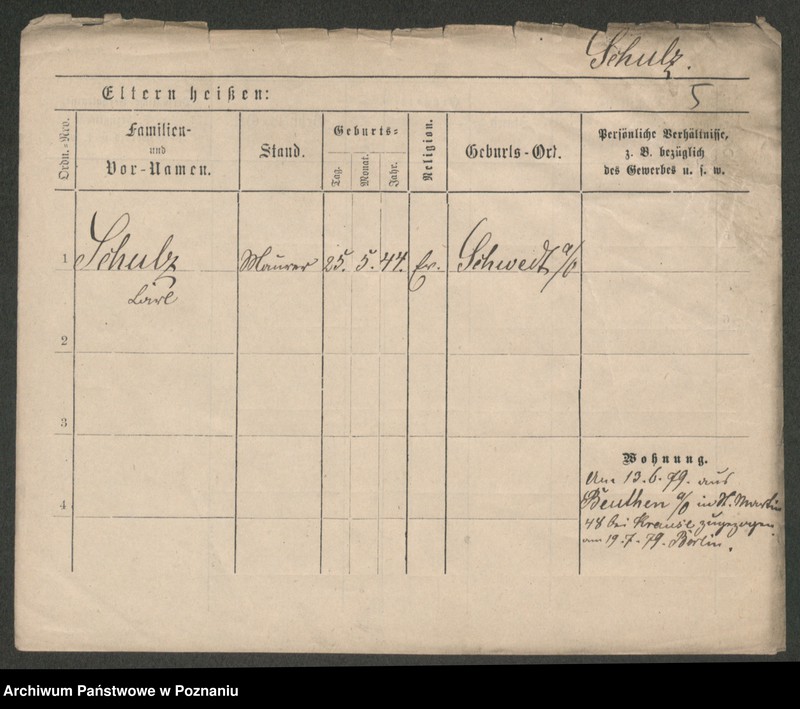 Schulz.
5
Eltern heißen:
Ordn.-Nro.
Familien-
und
Vor-Namen.
Stand.
Geburts-
Tag.
Monat.
Jahr.
Religion.
Geburts-Ort.
Persönliche Verhältnisse,
z. B. bezüglich
des Gewerbes u. s. w.
1 Schulz Maurer 25. 5. 44. Ev. Schwedt a/O
Carl
2
3
Wohnung.
Am 13.6.79. aus
4 Beuthen a/O in St. Martin
48 bei Krause zugezogen.
am 19.7.79. Berlin.
Archiwum Państwowe w Poznaniu